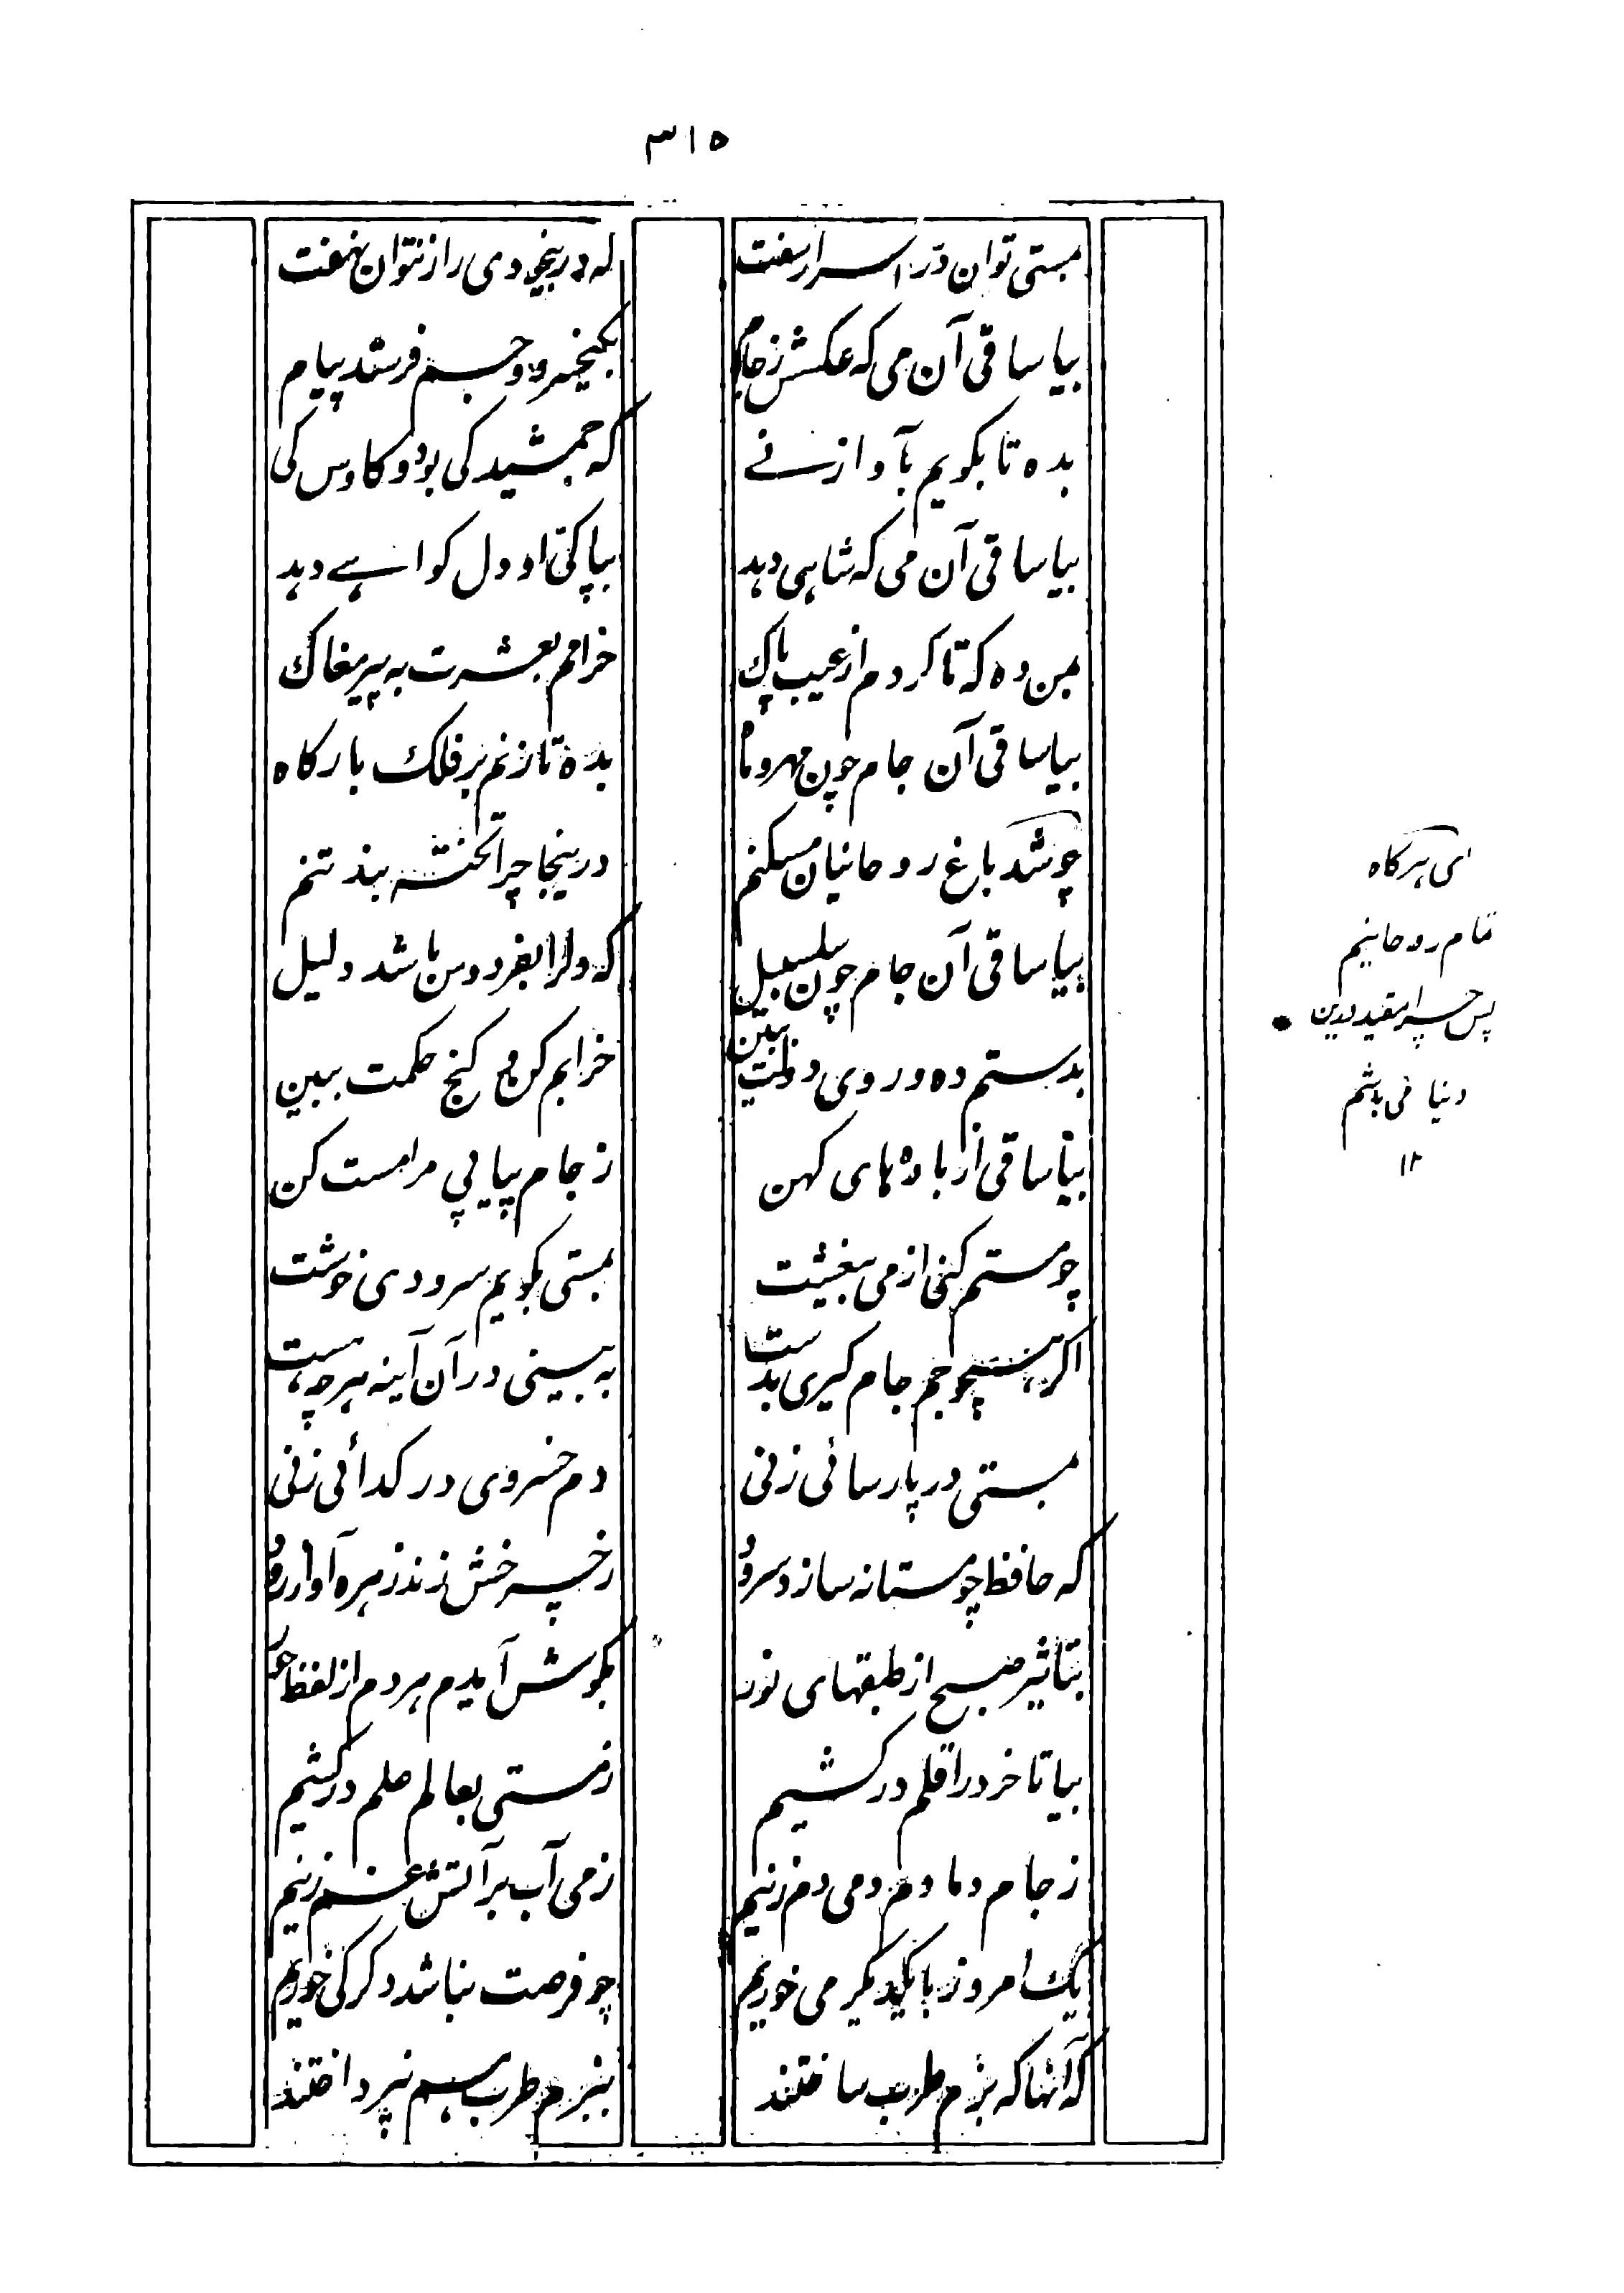 ۳۱۵
بمستی توان درّ اسرار سفت
که در بیخودی راز نتوان نهفت
بیا ساقی آن می که عکسش ز جام
بکیخسرو و جم فرستد پیام
بده تا بکویم بآواز نے
که جمشید کی بود و کاوس کی
بیا ساقی آن می که شاهی دهد
بپاکیّ او دل کواهے دهد
بمن ده که تا کردم از عیب پاک
خرامم بعشرت به پیر مغاک
بیا ساقی آن جام چون مهر و ماه
بده تا زنم بر فلک بارکاه
چو شد باغ روحانیان مسکنم
درینجا چرا تخته بند تنم
بیا ساقی آن جام چون سلسبیل
که دلرا بفردوس باشد دلیل
بدستم ده و روی دولت ببین
خرابم کن و کنج حکمت ببین
بیا ساقی از باده‌های کهن
ز جام پیاپی مرا مست کن
چو مستم کنی از می بیغشت
بمستی بکویم سرودی خوشت
اکر هستی چو جم جام کیری بدست
به بینی در آن آینه هرچه هست
بمستی در پارسائی زنی
دم خسروی در کدائی زنی
که حافظ چو مستانه سازد سرود
ز چرخش زند زهره آواز رود
بتاثیر صبح از طبقهای نور
بکوش آیدم هر دم از لفظ حور
بیا تا خرد را قلم درکشیم
ز مستی بعالم علم درکشیم
ز جام دمادم دمی دم زنیم
ز می آب بر آتش غم زنیم
یک امروز با یکدیکر می خوریم
چو فرصت نباشد دکر کی خوریم
که آنها که بزم طرب ساختند
ببزم طرب هم نپرداختند
ای هرکاه
تمام روحانیم
پس چرا مقید بدین
دنیا می باشم
۱۲